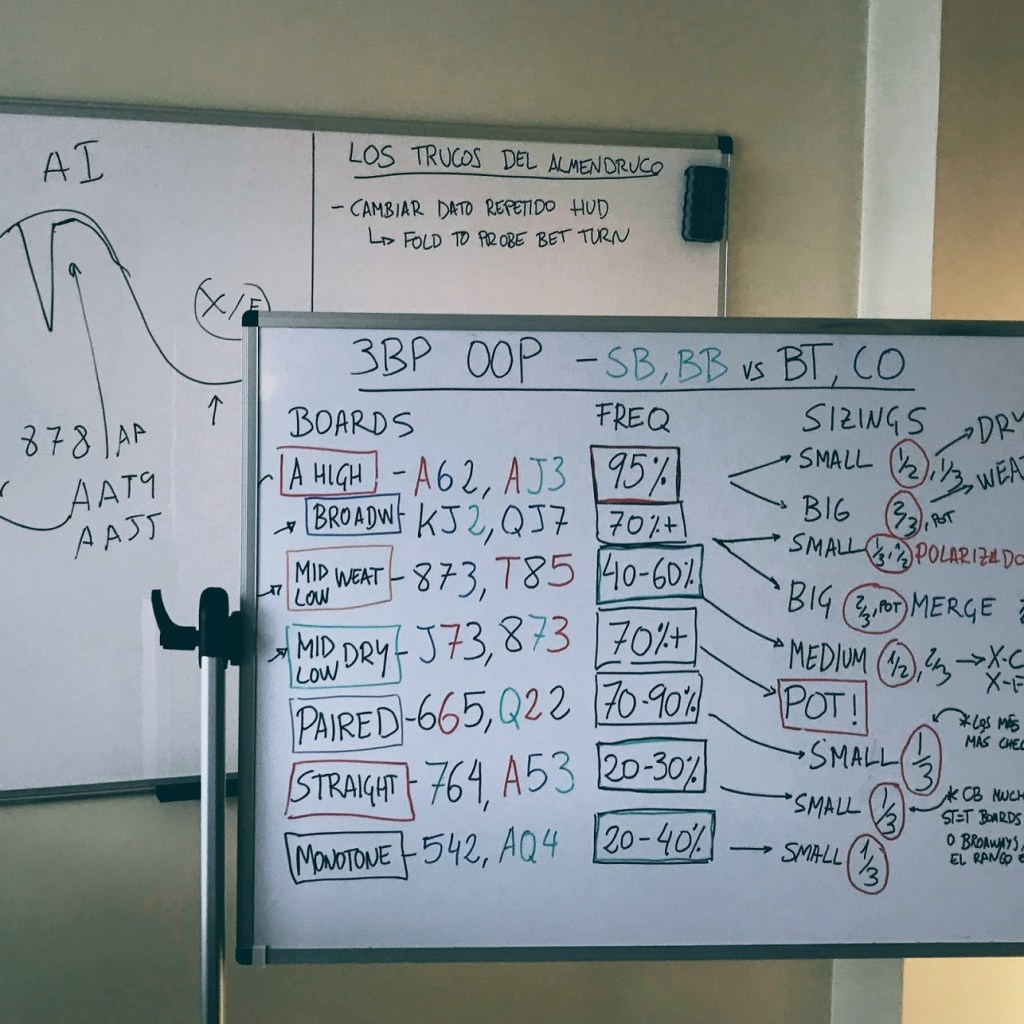 AI
X/F
878 AP
AAT9
AAJJ
LOS TRUCOS DEL ALMENDRUCO
- CAMBIAR DATO REPETIDO HUD
↳ FOLD TO PROBE BET TURN
3BP OOP - SB, BB vs BT, CO
BOARDS FREQ SIZINGS
A HIGH - A62, AJ3 95% SMALL 1/2, 1/3 → DRY
BIG 2/3, POT → WEAT
BROADW KJ2, QJ7 70%+ SMALL 1/3, 1/2 POLARIZADO
BIG 2/3, POT MERGE
MID LOW WEAT - 873, T85 40-60% MEDIUM 1/2, 2/3 → X-C
X-F
MID LOW DRY - J73, 873 70%+ POT!
PAIRED - 665, Q22 70-90% SMALL 1/3
* LOS MÁS
MÁS CHEC
STRAIGHT - 764, A53 20-30% SMALL 1/3
* CB MUCH
ST=T BOARDS
O BROAWAYS,
EL RANGO
MONOTONE - 542, AQ4 20-40% → SMALL 1/3